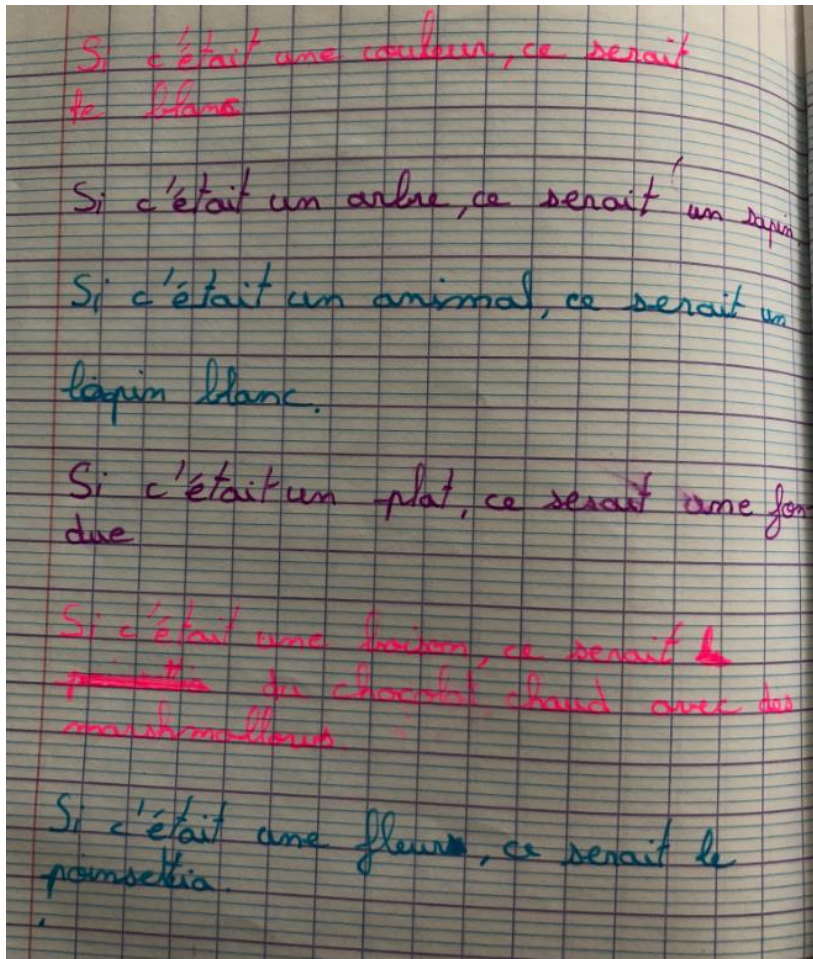 Si c'était une couleur, ce serait
le blanc
Si c'était un arbre, ce serait un sapin
Si c'était un animal, ce serait un
lapin blanc.
Si c'était un plat, ce serait une fon
due
Si c'était une boisson, ce serait
du chocolat chaud avec des
marshmallows.
Si c'était une fleur, ce serait le
poinsettia.